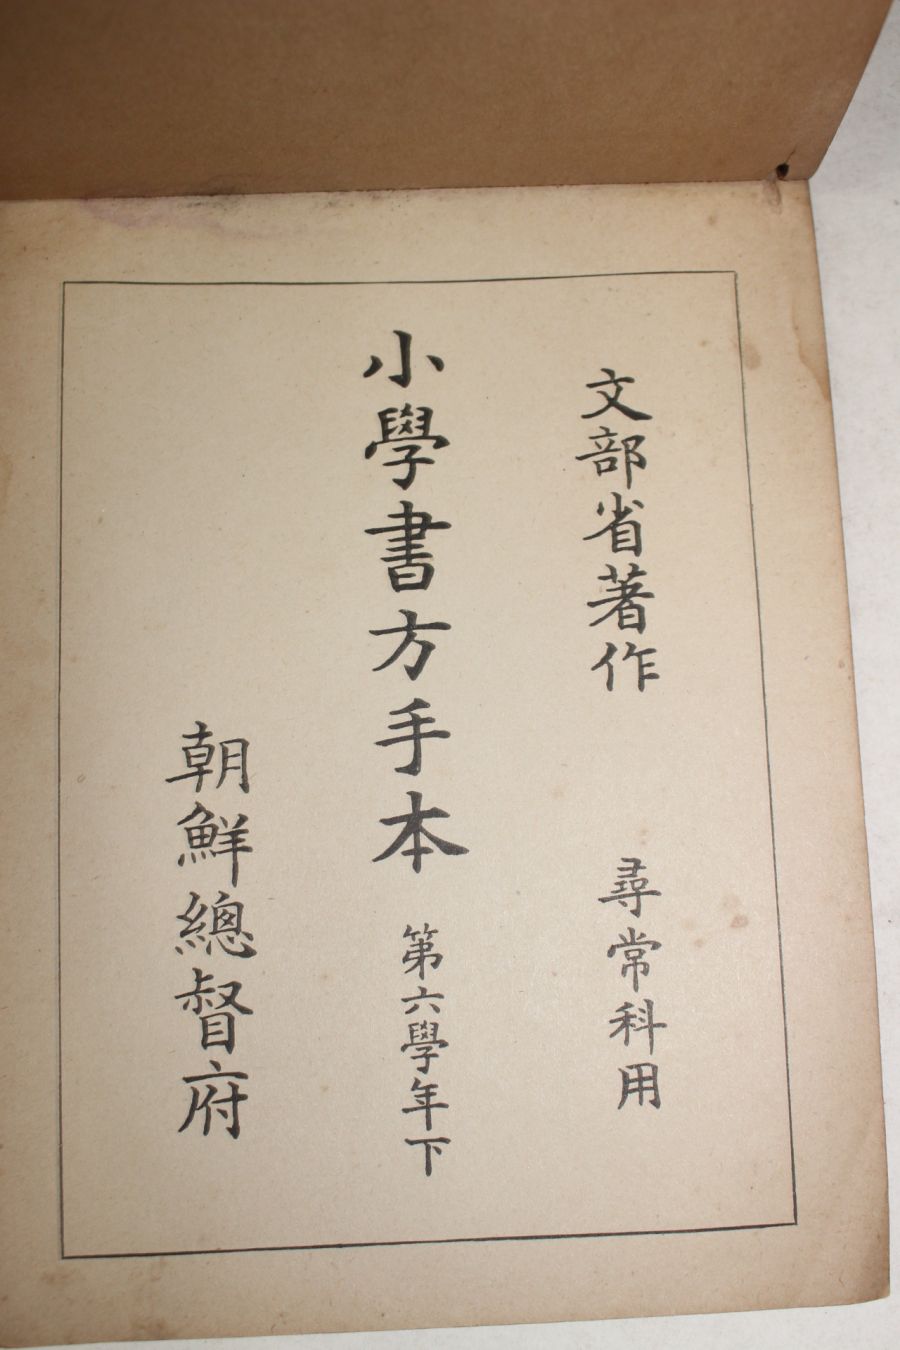 文部省著作 尋常科用
小學書方手本 第六學年下
朝鮮總督府